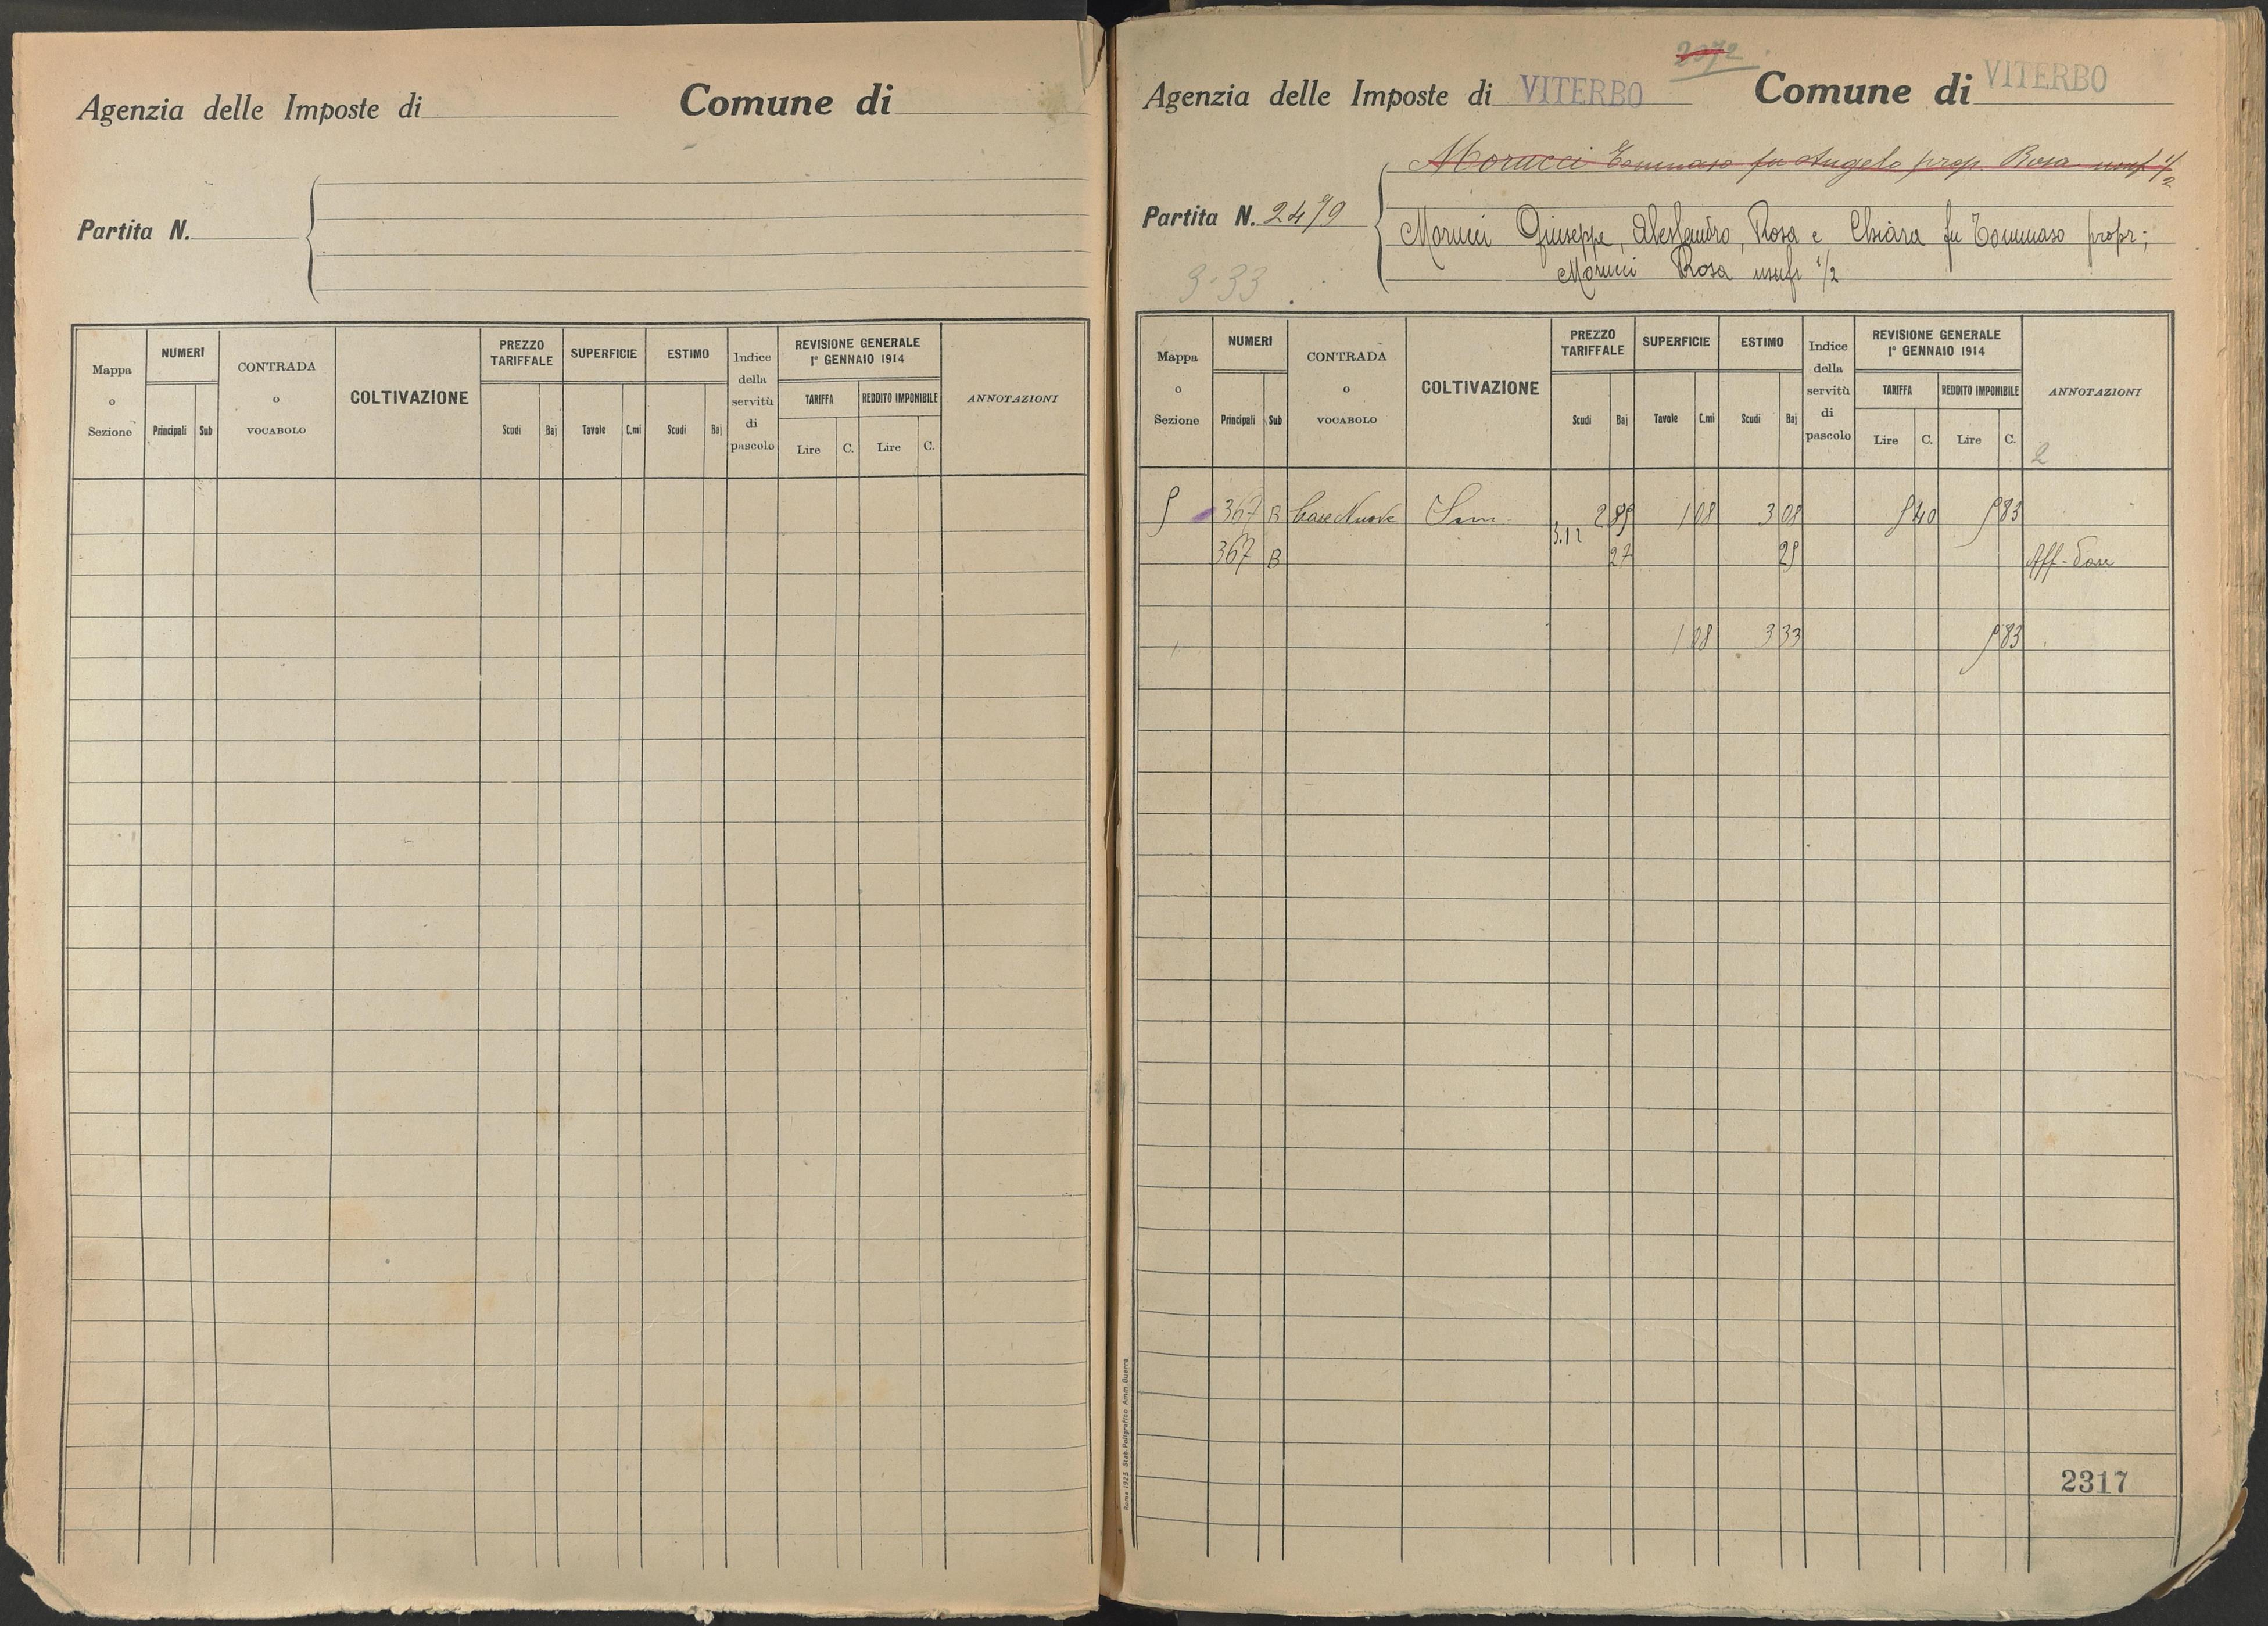 Agenzia delle Imposte di Comune di
Partita N.
Mappa o Sezione
NUMERI
Principali Sub
CONTRADA o VOCABOLO
COLTIVAZIONE
PREZZO TARIFFALE
Scudi Baj
SUPERFICIE
Tavole C.mi
ESTIMO
Scudi Baj
Indice della servitù di pascolo
REVISIONE GENERALE
1° GENNAIO 1914
TARIFFA
Lire C.
REDDITO IMPONIBILE
Lire C.
ANNOTAZIONI
2072
Agenzia delle Imposte di VITERBO Comune di VITERBO
Morucci Tommaso fu Angelo prop. Rosa usuf 1/2
Partita N. 2479
Morucci Giuseppe, Alessandro, Rosa e Chiara fu Tommaso propr;
Morucci Rosa usufr 1/2
3-33
Mappa o Sezione
NUMERI
Principali Sub
CONTRADA o VOCABOLO
COLTIVAZIONE
PREZZO TARIFFALE
Scudi Baj
SUPERFICIE
Tavole C.mi
ESTIMO
Scudi Baj
Indice della servitù di pascolo
REVISIONE GENERALE
1° GENNAIO 1914
TARIFFA
Lire C.
REDDITO IMPONIBILE
Lire C.
ANNOTAZIONI
2
367 B Case Nuove Sem 2 85 1 08 3 08 5 40 5 83
3.12
367 B 27 25 Aff-
1 08 3 33 5 83
2317
Roma 1925 Stab. Poligrafico Amm. Guerra